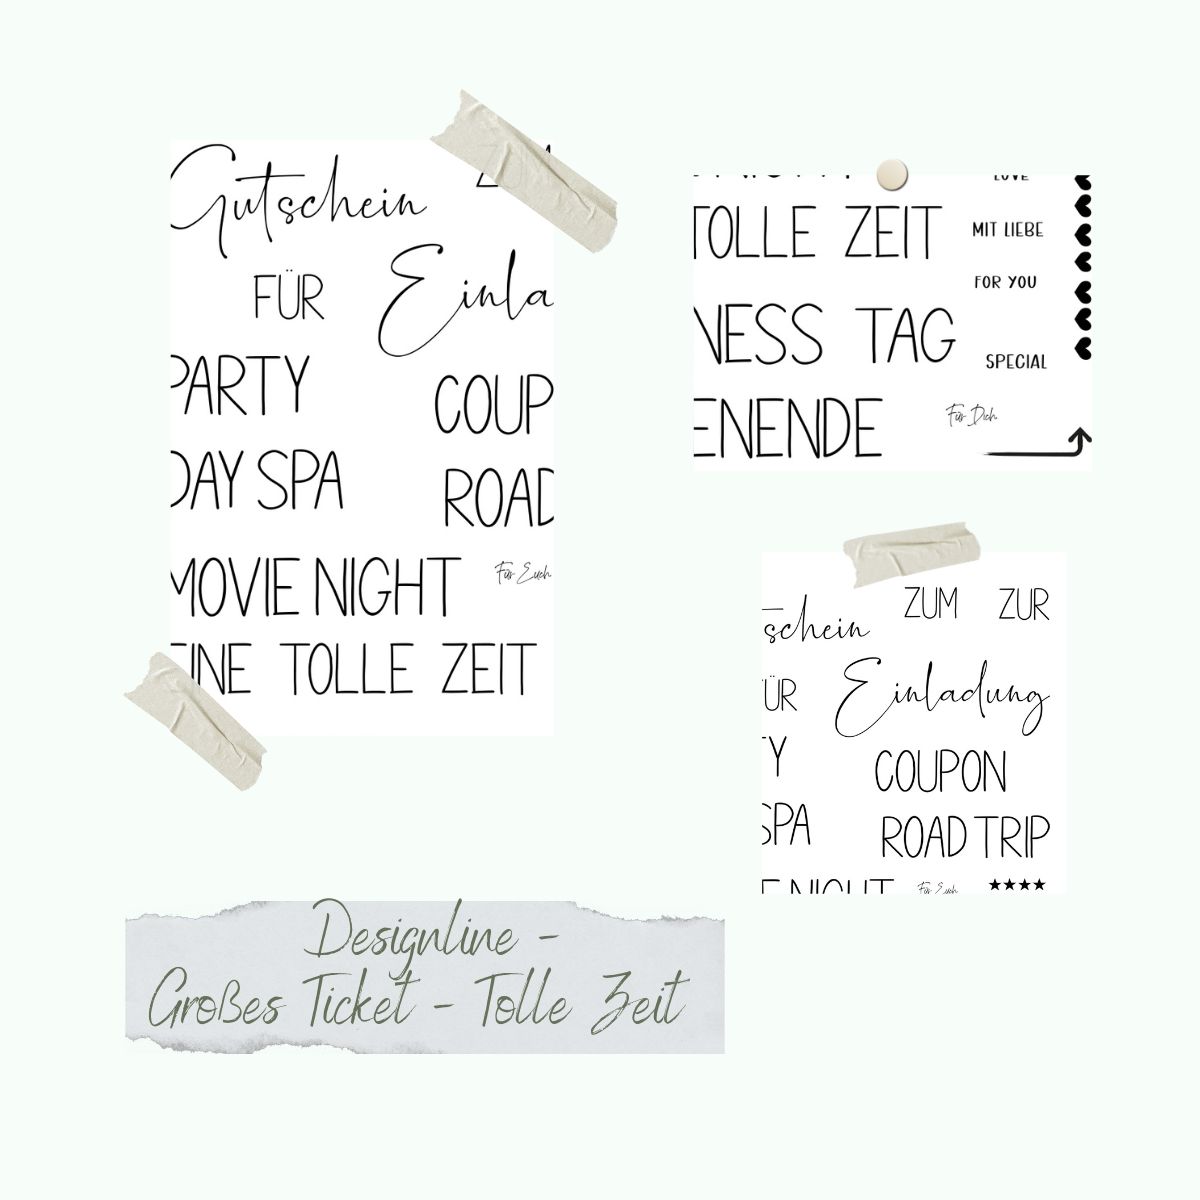 Gutschein
FÜR
Einla
PARTY
COUP
DAY SPA
ROAD
MOVIE NIGHT
Für Euch
EINE TOLLE ZEIT
LOVE
TOLLE ZEIT
MIT LIEBE
FOR YOU
NESS TAG
SPECIAL
ENENDE
Für Dich
ZUM ZUR
schein
ÜR
Einladung
TY
COUPON
SPA
ROAD TRIP
E NIGHT
Für Euch
Designline -
Großes Ticket - Tolle Zeit